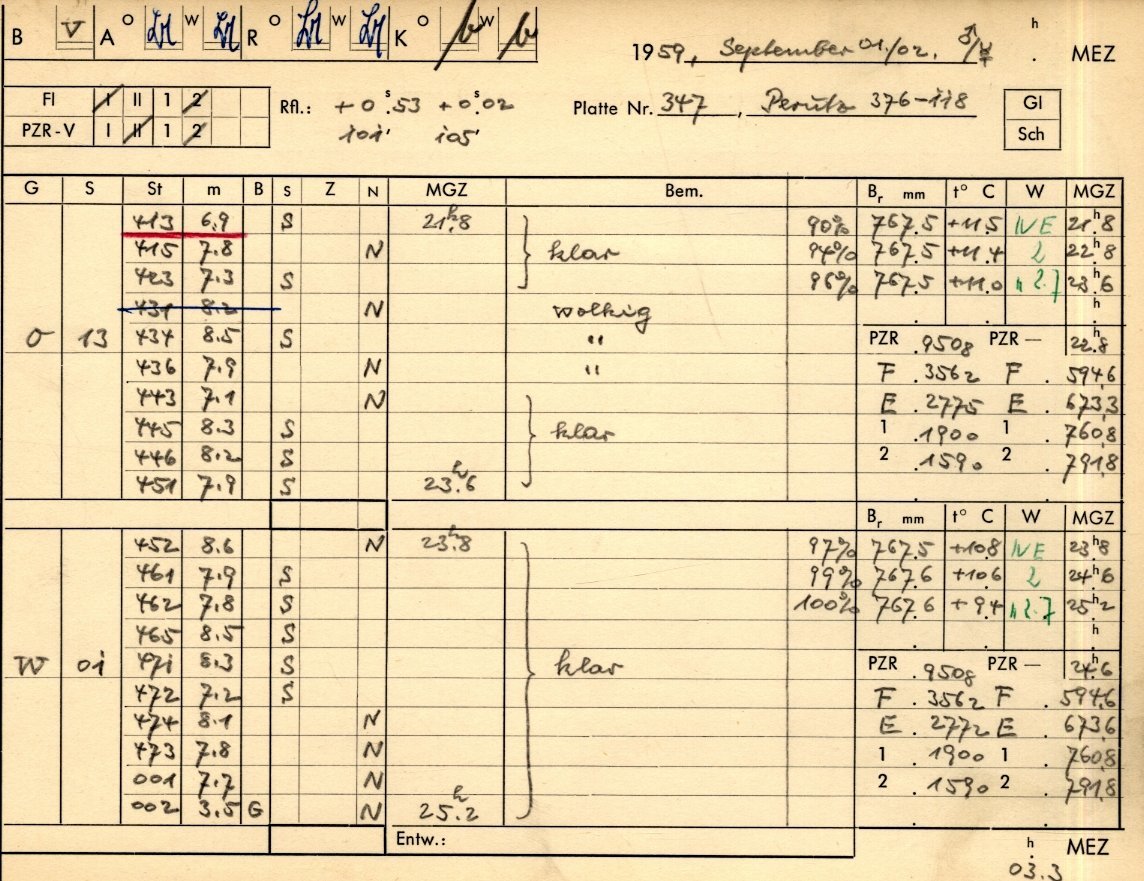 B V A O W R O W K O W
1959, September 01/02. ♂/☿ h . MEZ
Fl I II 1 2 Rfl.: +0ˢ.53 +0ˢ.02 Platte Nr. 347, Perutz 376-118 Gl
PZR-V I II 1 2 101' 105' Sch
G S St m B S Z N MGZ Bem. Br mm t° C W MGZ
413 6.9 S 21ʰ.8 90% 767.5 +11.5 NE 21ʰ.8
415 7.8 N klar 94% 767.5 +11.4 2 22ʰ.8
423 7.3 S 96% 767.5 +11.0 " 2.7 23ʰ.6
431 8.2 N wolkig . . h
O 13 434 8.5 S " PZR .9508 PZR — 22ʰ.8
436 7.9 N " F .3562 F . 594.6
443 7.1 N E .2775 E . 673.3
445 8.3 S klar 1 .1900 1 . 760.8
446 8.2 S 2 .1590 2 . 791.8
451 7.9 S 23ʰ.6 . .
Br mm t° C W MGZ
452 8.6 N 23ʰ.8 97% 767.5 +10.8 NE 23ʰ8
461 7.9 S 99% 767.6 +10.6 2 24ʰ6
462 7.8 S 100% 767.6 +9.4 " 2.7 25ʰ2
465 8.5 S . . h
W 01 471 8.3 S klar PZR .9508 PZR — 24ʰ.6
472 7.2 S F .3562 F . 594.6
474 8.1 N E .2772 E . 673.6
473 7.8 N 1 .1900 1 . 760.8
001 7.7 N 2 .1590 2 . 791.8
002 3.5 G N 25ʰ.2 . .
Entw.: h MEZ
03.3